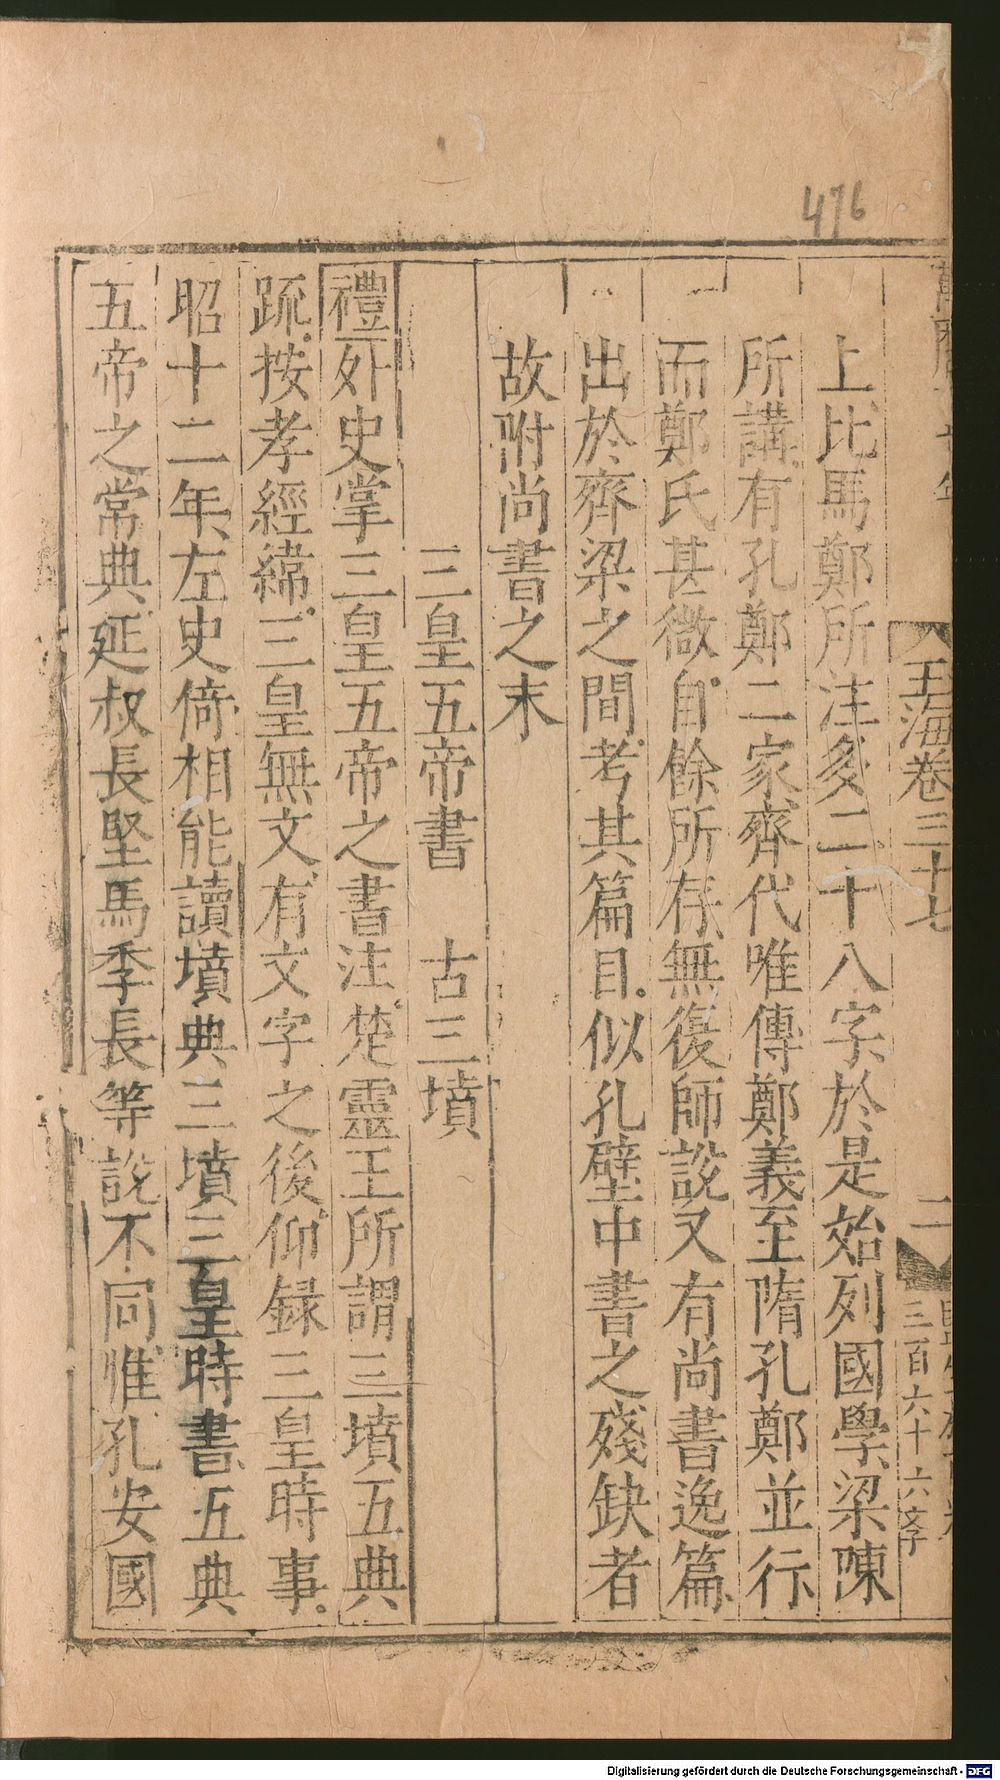 476
玉海卷三十七
二
三百六十六字
上比馬鄭所注多二十八字於是始列國學梁陳
所講有孔鄭二家齊代唯傳鄭義至隋孔鄭並行
而鄭氏甚微自餘所存無復師說又有尚書逸篇
出於齊梁之間考其篇目似孔壁中書之殘缺者
故附尚書之末
三皇五帝書 古三墳
禮外史掌三皇五帝之書注楚靈王所謂三墳五典
疏按孝經緯三皇無文有文字之後仰録三皇時事
昭十二年左史倚相能讀墳典三墳三皇時書五典
五帝之常典延叔長堅馬季長等說不同惟孔安國
Digitalisierung gefördert durch die Deutsche Forschungsgemeinschaft - DFG